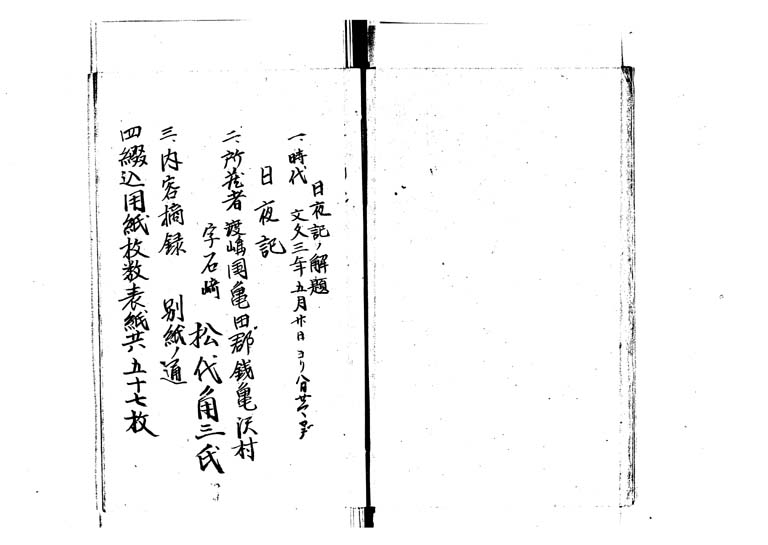 日夜記ノ解題
一、時代 文久三年五月廿日ヨリ八月廿
日夜記
二、所蔵者 渡嶋国亀田郡銭亀沢村
字石崎 松代角三氏
三、内容摘録 別紙ノ通
四綴込用紙枚数表紙共五十七枚